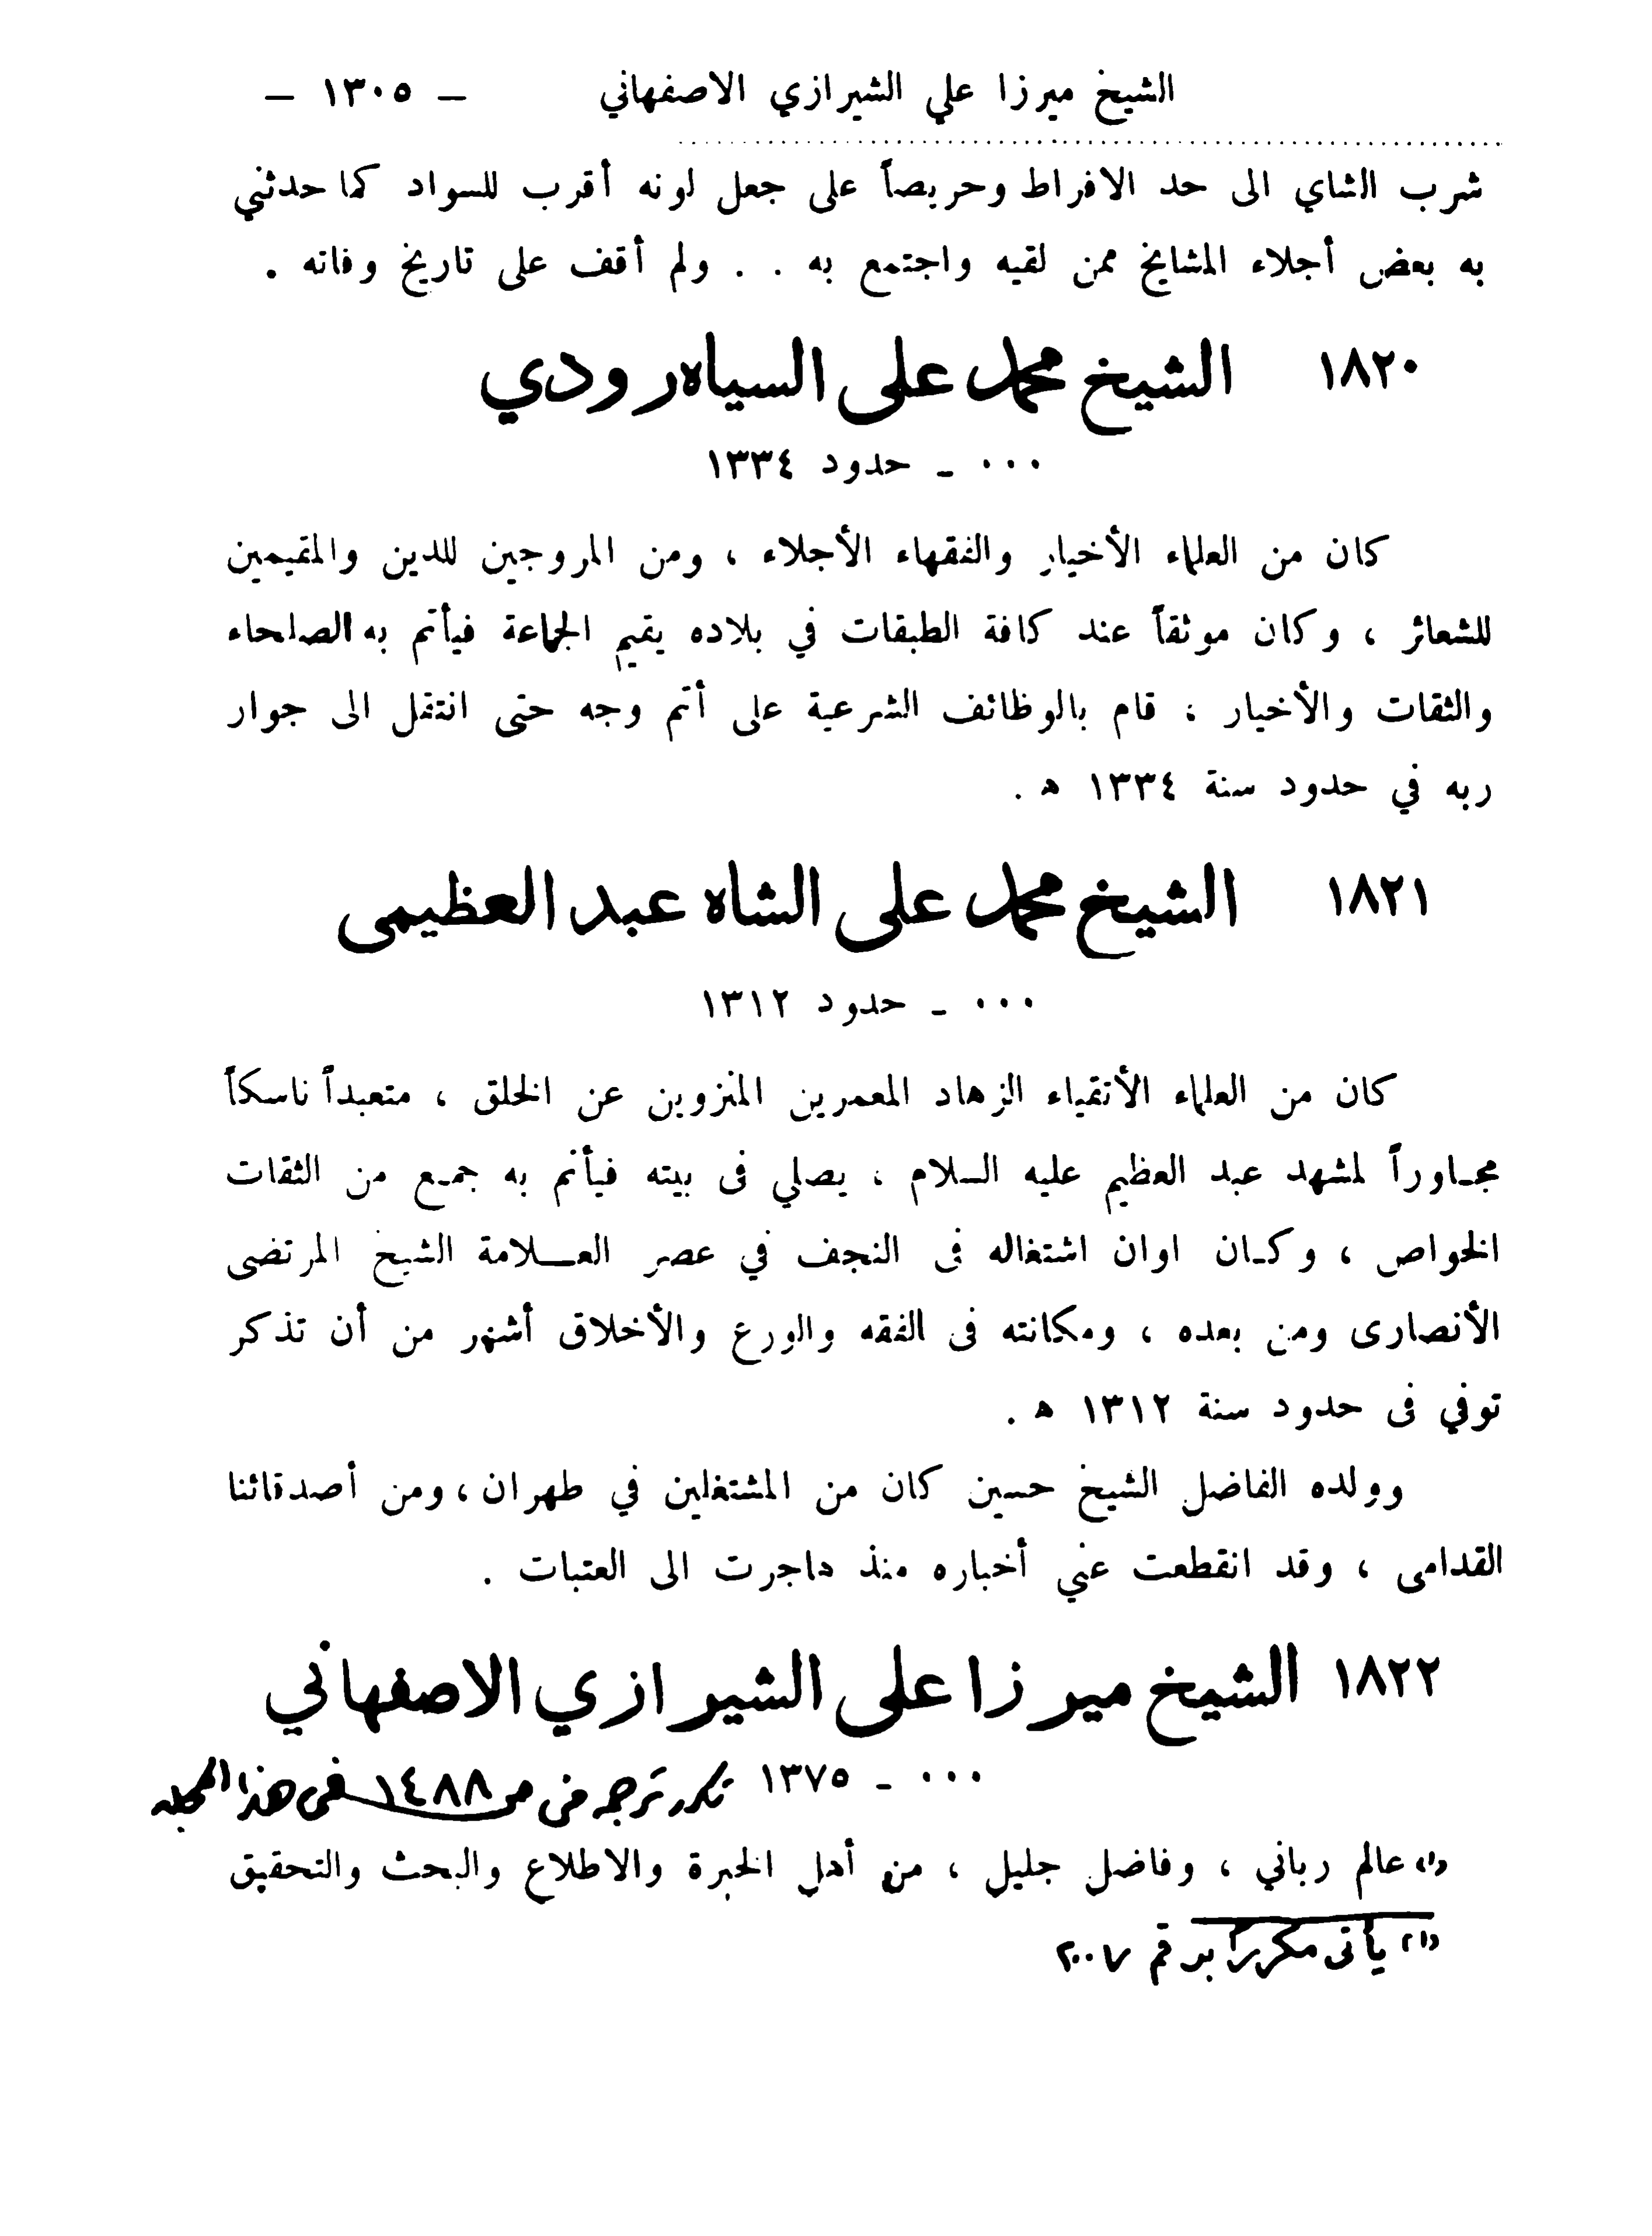 الشيخ ميرزا علي الشيرازي الاصفهاني — ١٣٠٥ —
شرب الشاي الى حد الافراط وحريصاً على جعل لونه أقرب للسواد كما حدثني
به بعض أجلاء المشايخ ممن لقيه واجتمع به . . ولم أقف على تاريخ وفاته .
١٨٢٠ الشيخ محمد على السياه رودي
٠٠٠ ـ حدود ١٣٣٤
كان من العلماء الأخيار والفقهاء الأجلاء ، ومن المروجين للدين والمقيمين
للشعائر ، وكان موثقاً عند كافة الطبقات في بلاده يقيم الجماعة فيأتم به الصلحاء
والثقات والأخيار ، قام بالوظائف الشرعية على أتم وجه حتى انتقل الى جوار
ربه في حدود سنة ١٣٣٤ ه .
١٨٢١ الشيخ محمد على الشاه عبد العظيمى
٠٠٠ ـ حدود ١٣١٢
كان من العلماء الأتقياء الزهاد المعمرين المنزوين عن الخلق ، متعبداً ناسكاً
مجاوراً لمشهد عبد العظيم عليه السلام ، يصلي فى بيته فيأتم به جمع من الثقات
الخواص ، وكان اوان اشتغاله فى النجف في عصر العلامة الشيخ المرتضى
الأنصارى ومن بعده ، ومكانته فى الفقه والورع والأخلاق أشهر من أن تذكر
توفي فى حدود سنة ١٣١٢ ه .
وولده الفاضل الشيخ حسين كان من المشتغلين في طهران ، ومن أصدقائنا
القدامى ، وقد انقطعت عني أخباره منذ هاجرت الى العتبات .
١٨٢٢ الشيخ ميرزا على الشيرازي الاصفهاني
٠٠٠ ـ ١٣٧٥ تكرر ترجمه في ص ١٤٨٨ في هذا
«١» عالم رباني ، وفاضل جليل ، من أهل الخبرة والاطلاع والبحث والتحقيق
«١» يأتى مكرراً برقم ٢٠٠٧